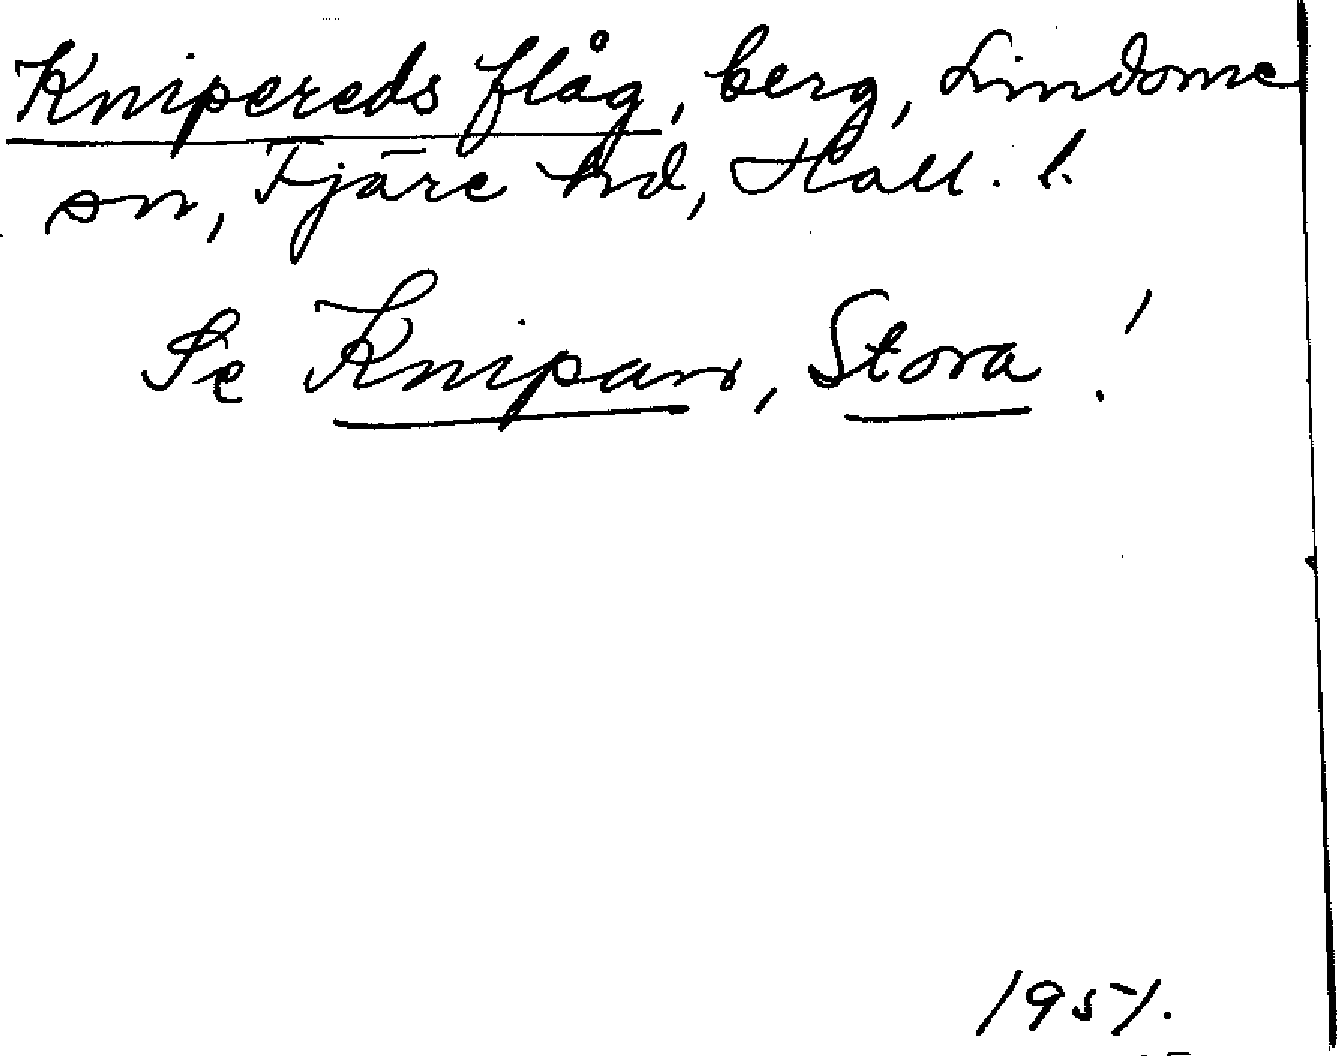 Knipereds flåg, berg, Lindome
sn, Fjäre hd, Hall. l.
Se Knipan, Stora!
1951.